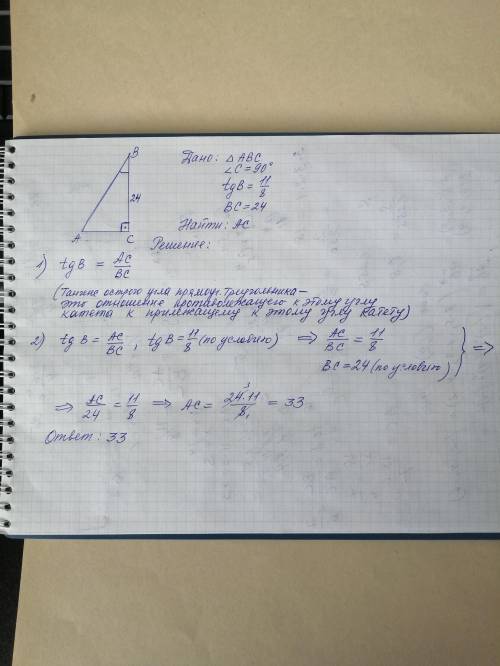 B
24
A
C
Дано: △ ABC
∠C = 90°
tgB = 11/8
BC = 24
Найти: AC
Решение:
1) tgB = AC/BC
(Тангенс острого угла прямоуг. треугольника –
это отношение противолежащего к этому углу
катета к прилежащему к этому углу катету)
2) tgB = AC/BC, tgB = 11/8 (по условию) ⇒ AC/BC = 11/8 } ⇒
BC = 24 (по условию)
⇒ AC/24 = 11/8 ⇒ AC = 24³·11/8₁ = 33
Ответ: 33